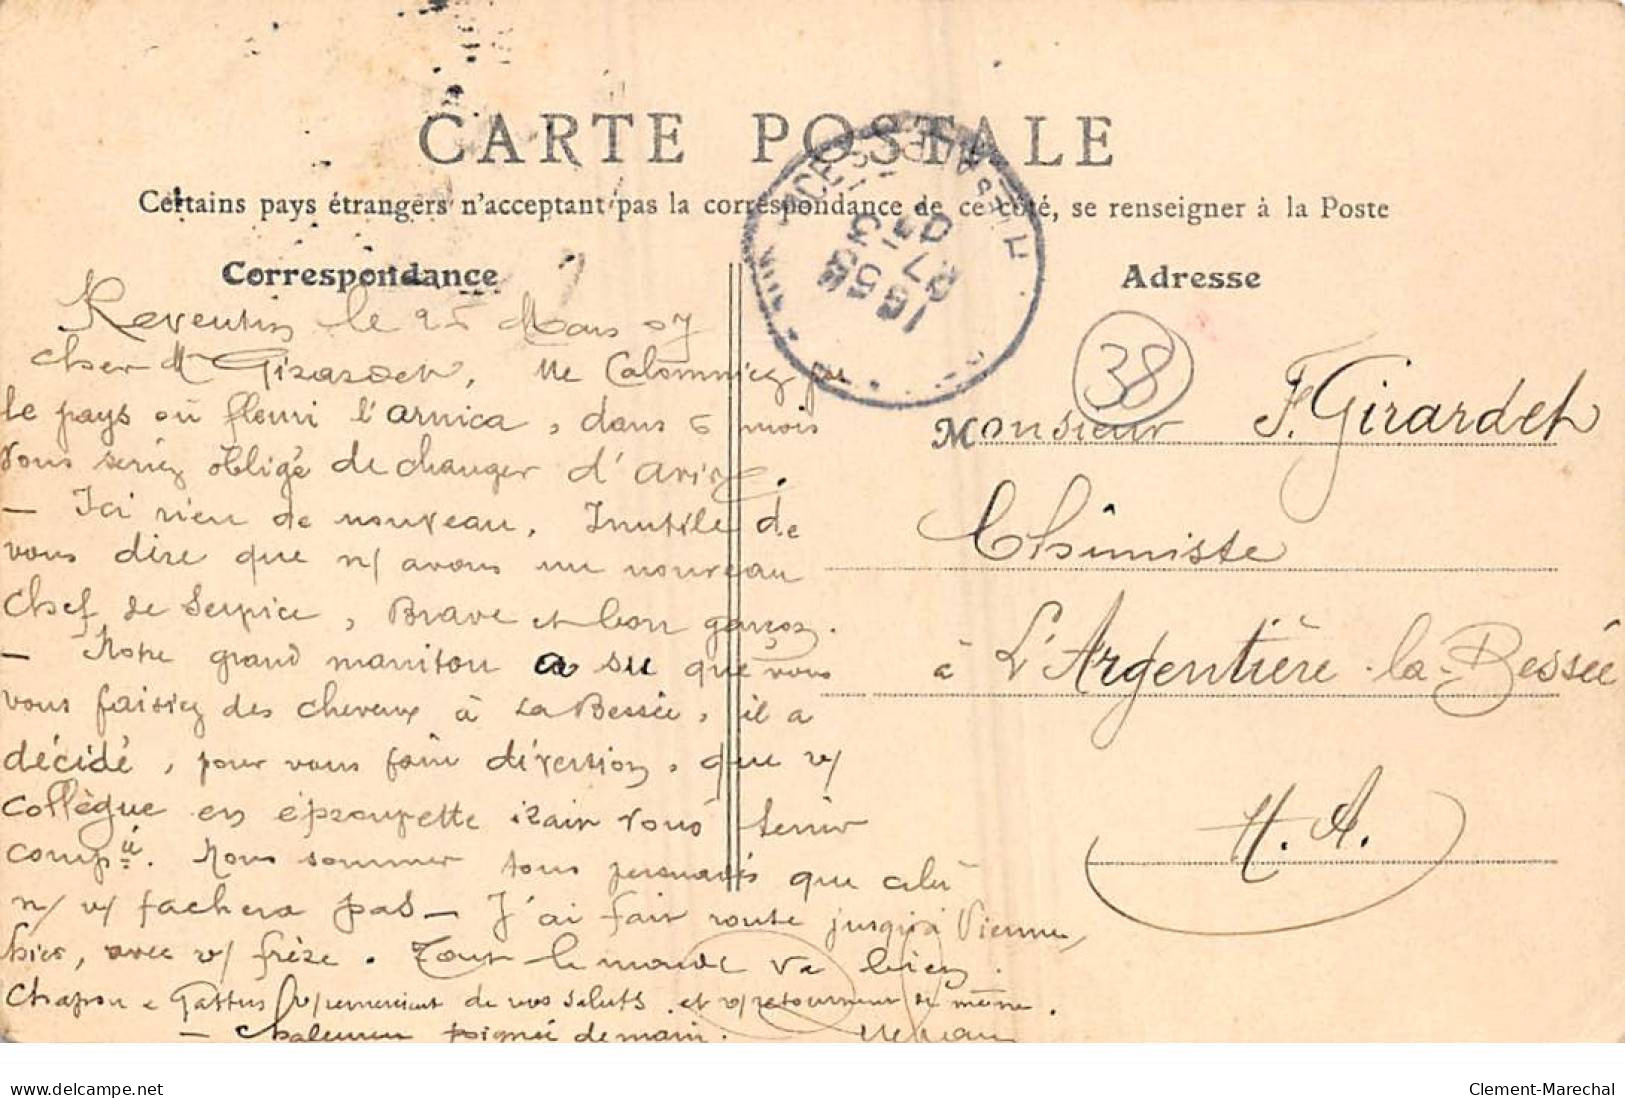 CARTE POSTALE
Certains pays étrangers n'acceptent pas la correspondance de ce côté, se renseigner à la Poste
Correspondance
Reventin le 25 Mars 07
Cher Mr Girardet, Ne Calomniez pas
le pays où fleuri l'arnica, dans 6 mois
vous seriez obligé de changer d'avis.
— Ici rien de nouveau. Inutile de
vous dire que n/ avons un nouveau
chef de service, Brave et bon garçon.
— Notre grand manitou a su que vous
vous faisiez des cheveux à La Bessée, il a
décidé, pour vous faire diversion, que v/
collègue en éprouvette irair vous tenir
compie. Nous sommes tous persuadés que cela
n/ v/ fachera pas — J'ai fait route jusqu'à Vienne,
hier, avec v/ frère. Tout le monde va bien.
Chapon e Gattus v/ remercient de vos saluts et v/ retournent de même.
— Chaleureu poignée de main.
Adresse
38
Monsieur F. Girardet
Chimiste
à L'Argentière-la-Bessée
H. A.
16 55
27 3
07
delcampe.net
Clement-Marechal